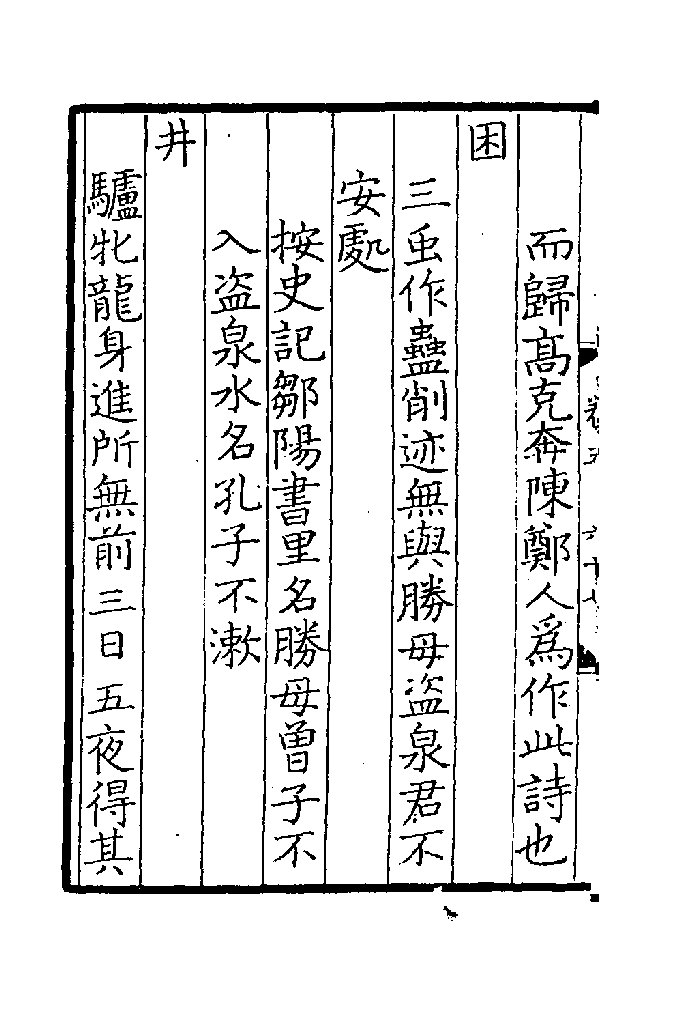 而歸髙克奔陳鄭人爲作此詩也
困
三虫作蠱削迹無與勝母盗泉君不
安處
按史記鄒陽書里名勝母曾子不
入盗泉水名孔子不漱
井
驢牝龍身進所無前三日五夜得其